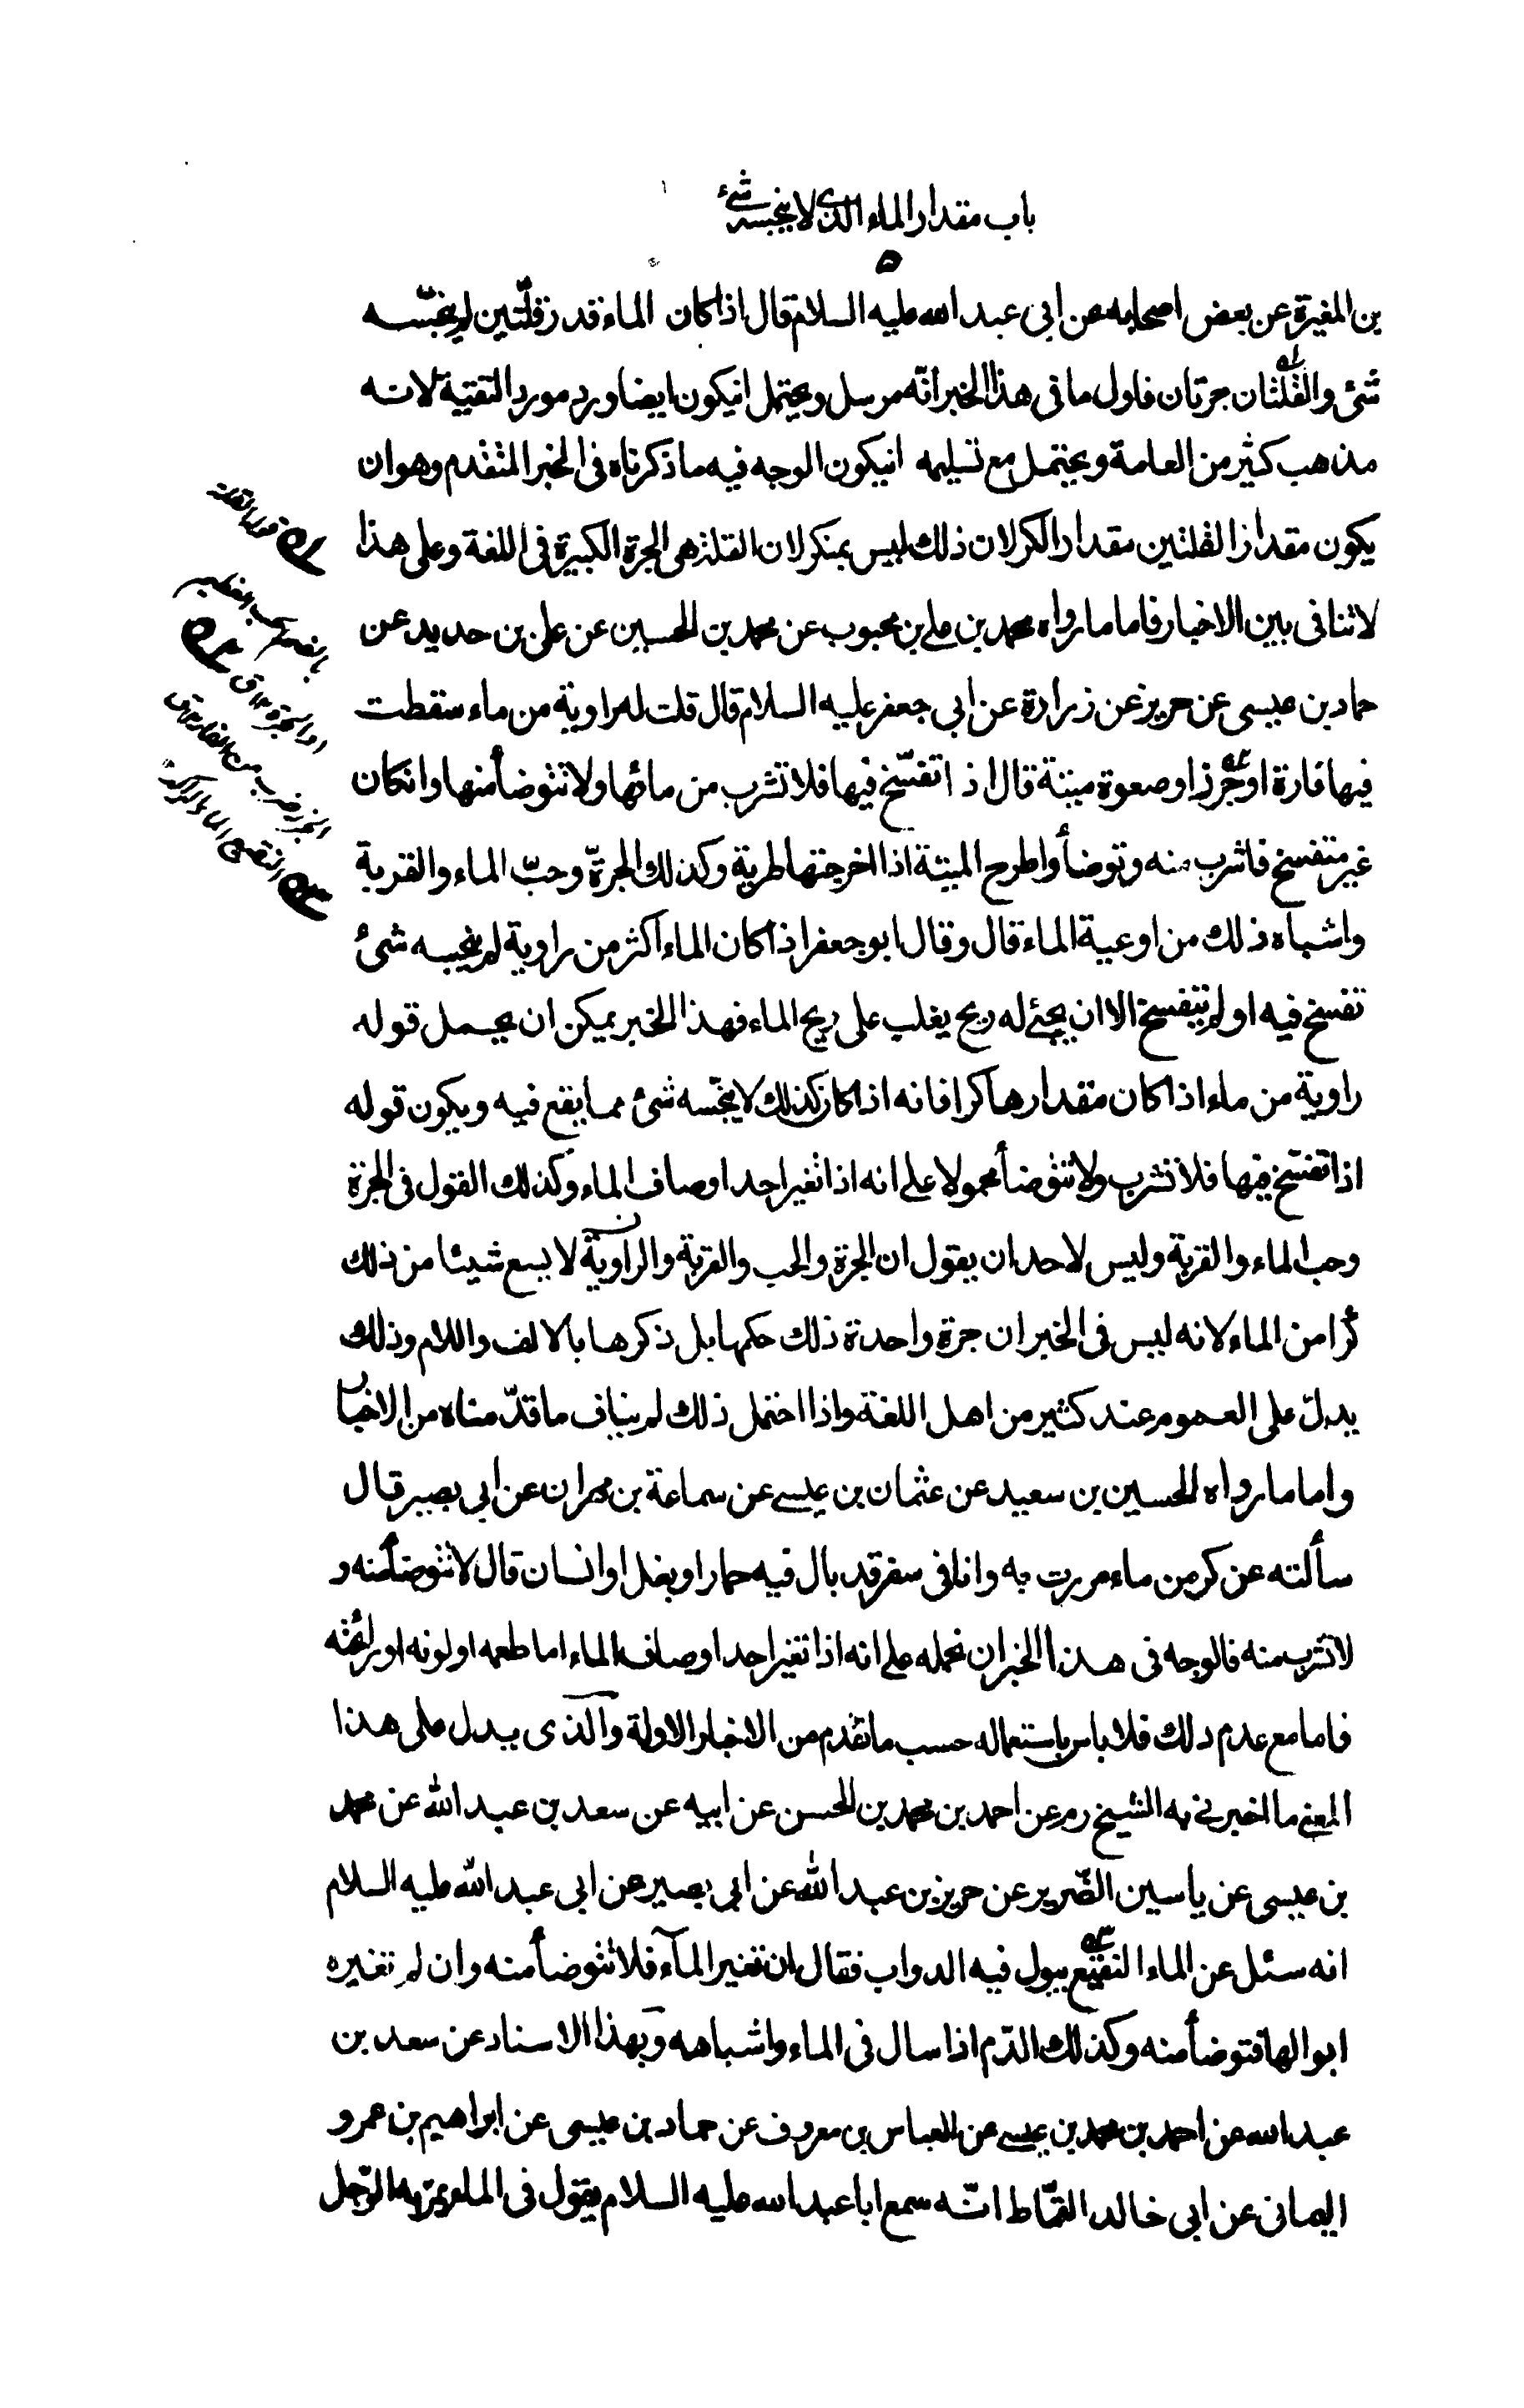 باب مقدار الماء الذى لا ينجسه شئ
۵
بن المغيرة عن بعض اصحابه عن ابى عبد الله عليه السلام قال اذا كان الماء قدر قلّتين لم ينجّسه
شئ والقلتان جرتان فاول ما فى هذا الخبر انّه مرسل ويحتمل انيكون ايضا ورد مورد التقيّة لانه
مذهب كثير من العامة ويحتمل مع تسليمه انيكون الوجه فيه ما ذكرناه فى الخبر المتقدم وهو ان
يكون مقدار القلتين مقدار الكر لان ذلك ليس بمنكر لان القلة هى الجرة الكبيرة فى اللغة وعلى هذا
لا تنافى بين الاخبار فاما ما رواه محمد بن على بن محبوب عن محمد بن الحسين عن على بن حديد عن
حماد بن عيسى عن حريز عن زرارة عن ابى جعفر عليه السلام قال قلت له راوية من ماء سقطت
فيها فارة او جرذ او صعوة ميتة قال اذا تفسّخ فيها فلا تشرب من مائها ولا تتوضأ منها وانكان
غير متفسخ فاشرب منه وتوضأ واطرح الميتة اذا اخرجتها طرية وكذلك الجرّة وحبّ الماء والقربة
واشباه ذلك من اوعية الماء قال وقال ابو جعفر اذا كان الماء اكثر من راوية لم ينجسه شئ
تفسخ فيه او لم يتفسخ الا ان يجئ له ريح يغلب على ريح الماء فهذا الخبر يمكن ان يحمل قوله
راوية من ماء اذا كان مقدارها كرا فانه اذا كان كذلك لا ينجّسه شئ مما يقع فيه ويكون قوله
اذا تفسّخ فيها فلا تشرب ولا تتوضأ محمولا على انه اذا تغير احد اوصاف الماء وكذلك القول فى الجرة
وحب الماء والقربة وليس لاحد ان يقول ان الجرة والحب والقربة والراوية لا يسع شيئا من ذلك
كرّا من الماء لانه ليس فى الخبر ان جرة واحدة ذلك حكمها بل ذكرها بالالف واللام وذلك
يدلّ على العموم عند كثير من اهل اللغة واذا احتمل ذلك لم يناف ما قدّمناه من الاخبار
واما ما رواه الحسين بن سعيد عن عثمان بن عيسى عن سماعة بن مهران عن ابى بصير قال
سألته عن كر من ماء مررت به وانا فى سفر قد بال فيه حمار او بغل او انسان قال لا تتوضأ منه و
لا تشرب منه فالوجه فى هذا الخبر ان نحمله على انه اذا تغير احد اوصاف الماء اما طعمه او لونه او رائحته
فاما مع عدم ذلك فلا باس باستعماله حسب ما تقدم من الاخبار الاولة والذى يدل على هذا
المعنى ما اخبرنى به الشيخ ره عن احمد بن محمد بن الحسن عن ابيه عن سعد بن عبد الله عن محمد
بن عيسى عن ياسين الضّرير عن حريز بن عبد الله عن ابى بصير عن ابى عبد الله عليه السلام
انه سئل عن الماء النقيع يبول فيه الدواب فقال ان تغير المآء فلا تتوضأ منه وان لم تغيره
ابوالها فتوضأ منه وكذلك الدّم اذا سال فى الماء واشباهه وبهذا الاسناد عن سعد بن
عبد الله عن احمد بن محمد بن عيسى عن العباس بن معروف عن حماد بن عيسى عن ابراهيم بن عمرو
اليمانى عن ابى خالد القمّاط انّه سمع ابا عبد الله عليه السلام يقول فى الماء يمرّ به الرّجل